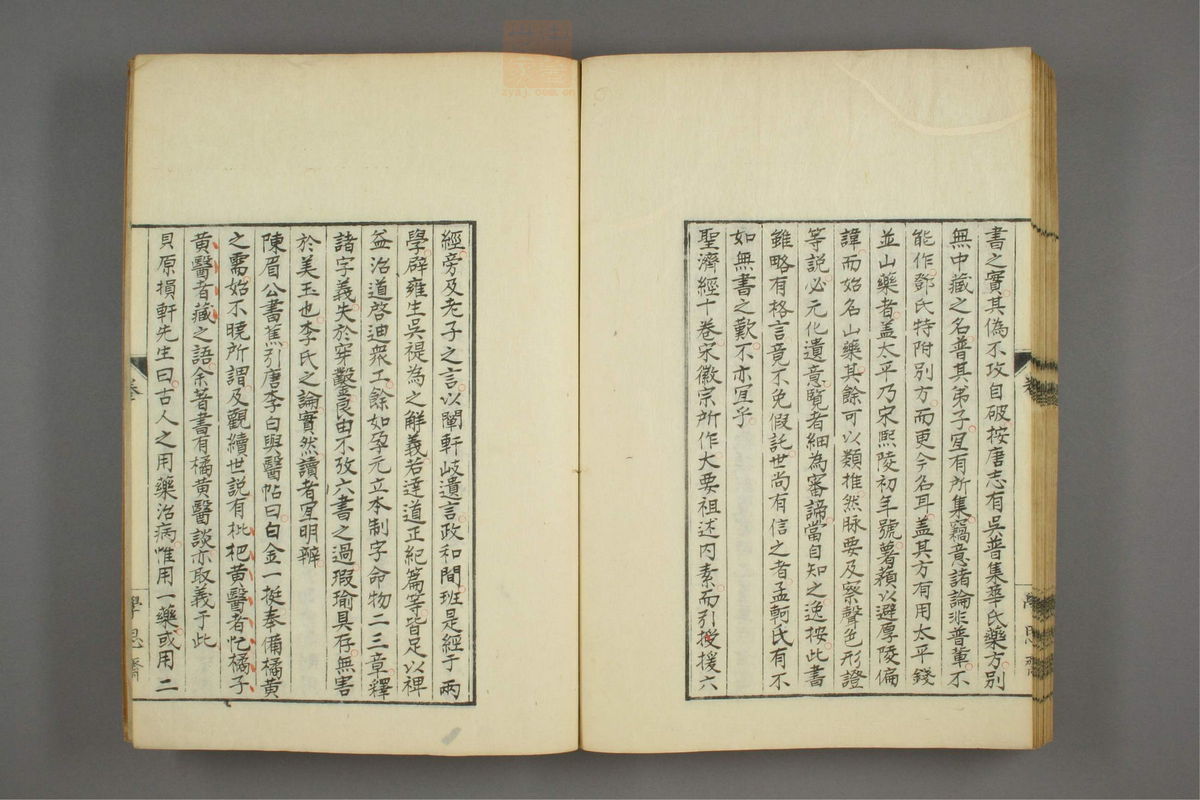 書之實其偽不攻自破按唐志有吳普集華氏藥方別
無中藏之名普其弟子宜有所集竊意諸論非普輩不
能作鄧氏特附別方而更今名耳蓋其方有用太平錢
並山藥者蓋太平乃宋熙陵初年號薯蕷以避厚陵偏
諱而始名山藥其餘可以類推然脉要及察聲色形證
等説必元化遺意覽者細為審諦當自知之逸按此書
雖略有格言竟不免假託世尚有信之者孟軻氏有不
如無書之歎不亦宜乎
聖濟經十卷宋徽宗所作大要祖述内素而引援六
經旁及老子之言以闡軒岐遺言政和間班是經于兩
學辟雍生吳禔為之解義若達道正紀篇等皆足以裨
益治道啓迪衆工餘如孕元立本制字命物二三章釋
諸字義失於穿鑿良由不攷六書之過瑕瑜具存無害
於美玉也李氏之論實然讀者宜明辨
陳眉公書蕉引唐李白與醫帖曰白金一挺奉備橘黃
之需始不曉所謂及觀續世説有枇杷黄醫者忙橘子
黄醫者藏之語余著書有橘黄醫談亦取義于此
貝原損軒先生曰古人之用藥治病惟用一藥或用二
學思齋